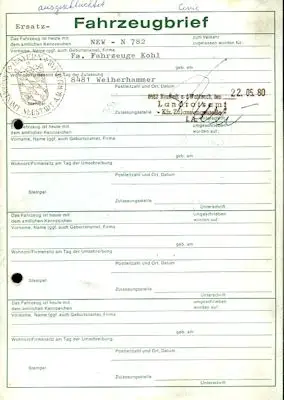 ausgeschlachtet
Civic
Ersatz-
Fahrzeugbrief
Das Fahrzeug ist heute mit
dem amtlichen Kennzeichen
NEW - N 782
zum Verkehr
zugelassen worden für:
Vorname, Name (ggf. auch Geburtsname), Firma
Fa. Fahrzeuge Kohl
geb. am
Wohnort/Firmensitz am Tag der Zulassung
8481 Weiherhammer
Postleitzahl und Ort, Datum
22. 05. 80
Landratsamt
Zulassungsstelle
Das Fahrzeug ist heute mit
dem amtlichen Kennzeichen
umgeschrieben
worden auf:
Vorname, Name (ggf. auch Geburtsname), Firma
geb. am
Wohnort/Firmensitz am Tag der Umschreibung
Postleitzahl und Ort, Datum
Stempel
Zulassungsstelle
Unterschrift
Das Fahrzeug ist heute mit
dem amtlichen Kennzeichen
umgeschrieben
worden auf:
Vorname, Name (ggf. auch Geburtsname), Firma
geb. am
Wohnort/Firmensitz am Tag der Umschreibung
Postleitzahl und Ort, Datum
Stempel
Zulassungsstelle
Unterschrift
Das Fahrzeug ist heute mit
dem amtlichen Kennzeichen
umgeschrieben
worden auf:
Vorname, Name (ggf. auch Geburtsname), Firma
geb. am
Wohnort/Firmensitz am Tag der Umschreibung
Postleitzahl und Ort, Datum
Stempel
Zulassungsstelle
Unterschrift